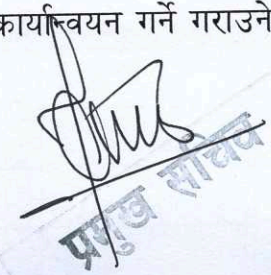 कार्यान्वयन गर्ने गराउने
प्रमुख सचिव